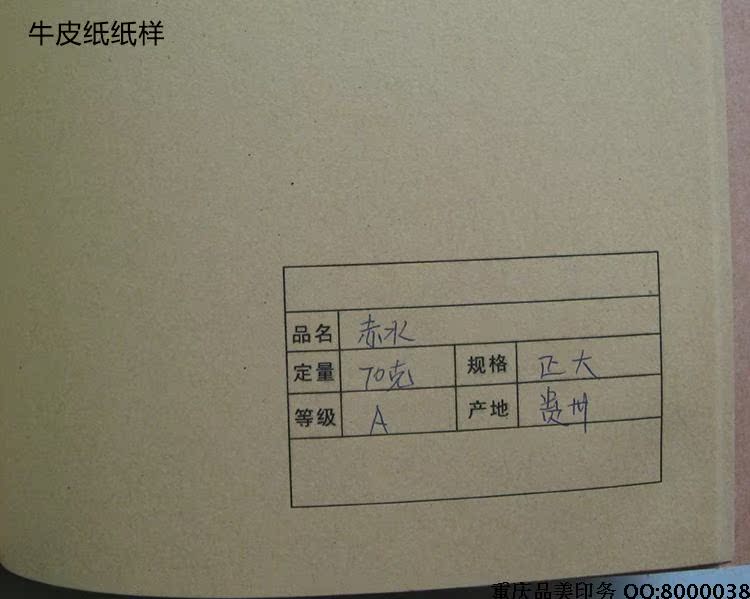 牛皮纸纸样
品名 赤水
定量 70克 规格 正大
等级 A 产地 贵州
重庆品美印务 QQ:8000038